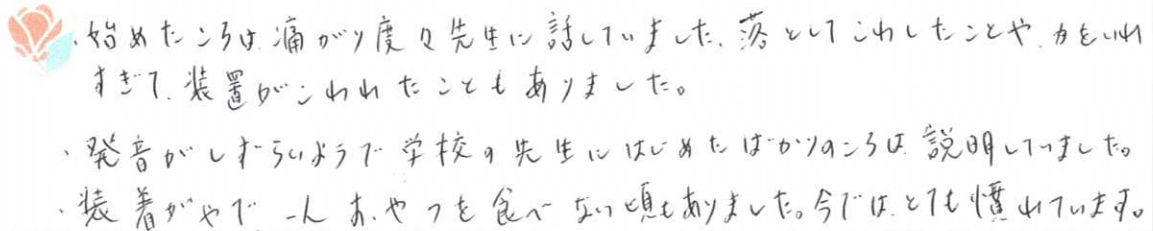 ・始めたころは、痛がり度々先生に話していました。落としてこわしたことや、力をいれ
すぎて、装置がこわれたこともありました。
・発音がしずらいようで学校の先生にはじめたばかりのころは、説明していました。
・装着がやで、一人おやつを食べない頃もありました。今では、とても慣れています。